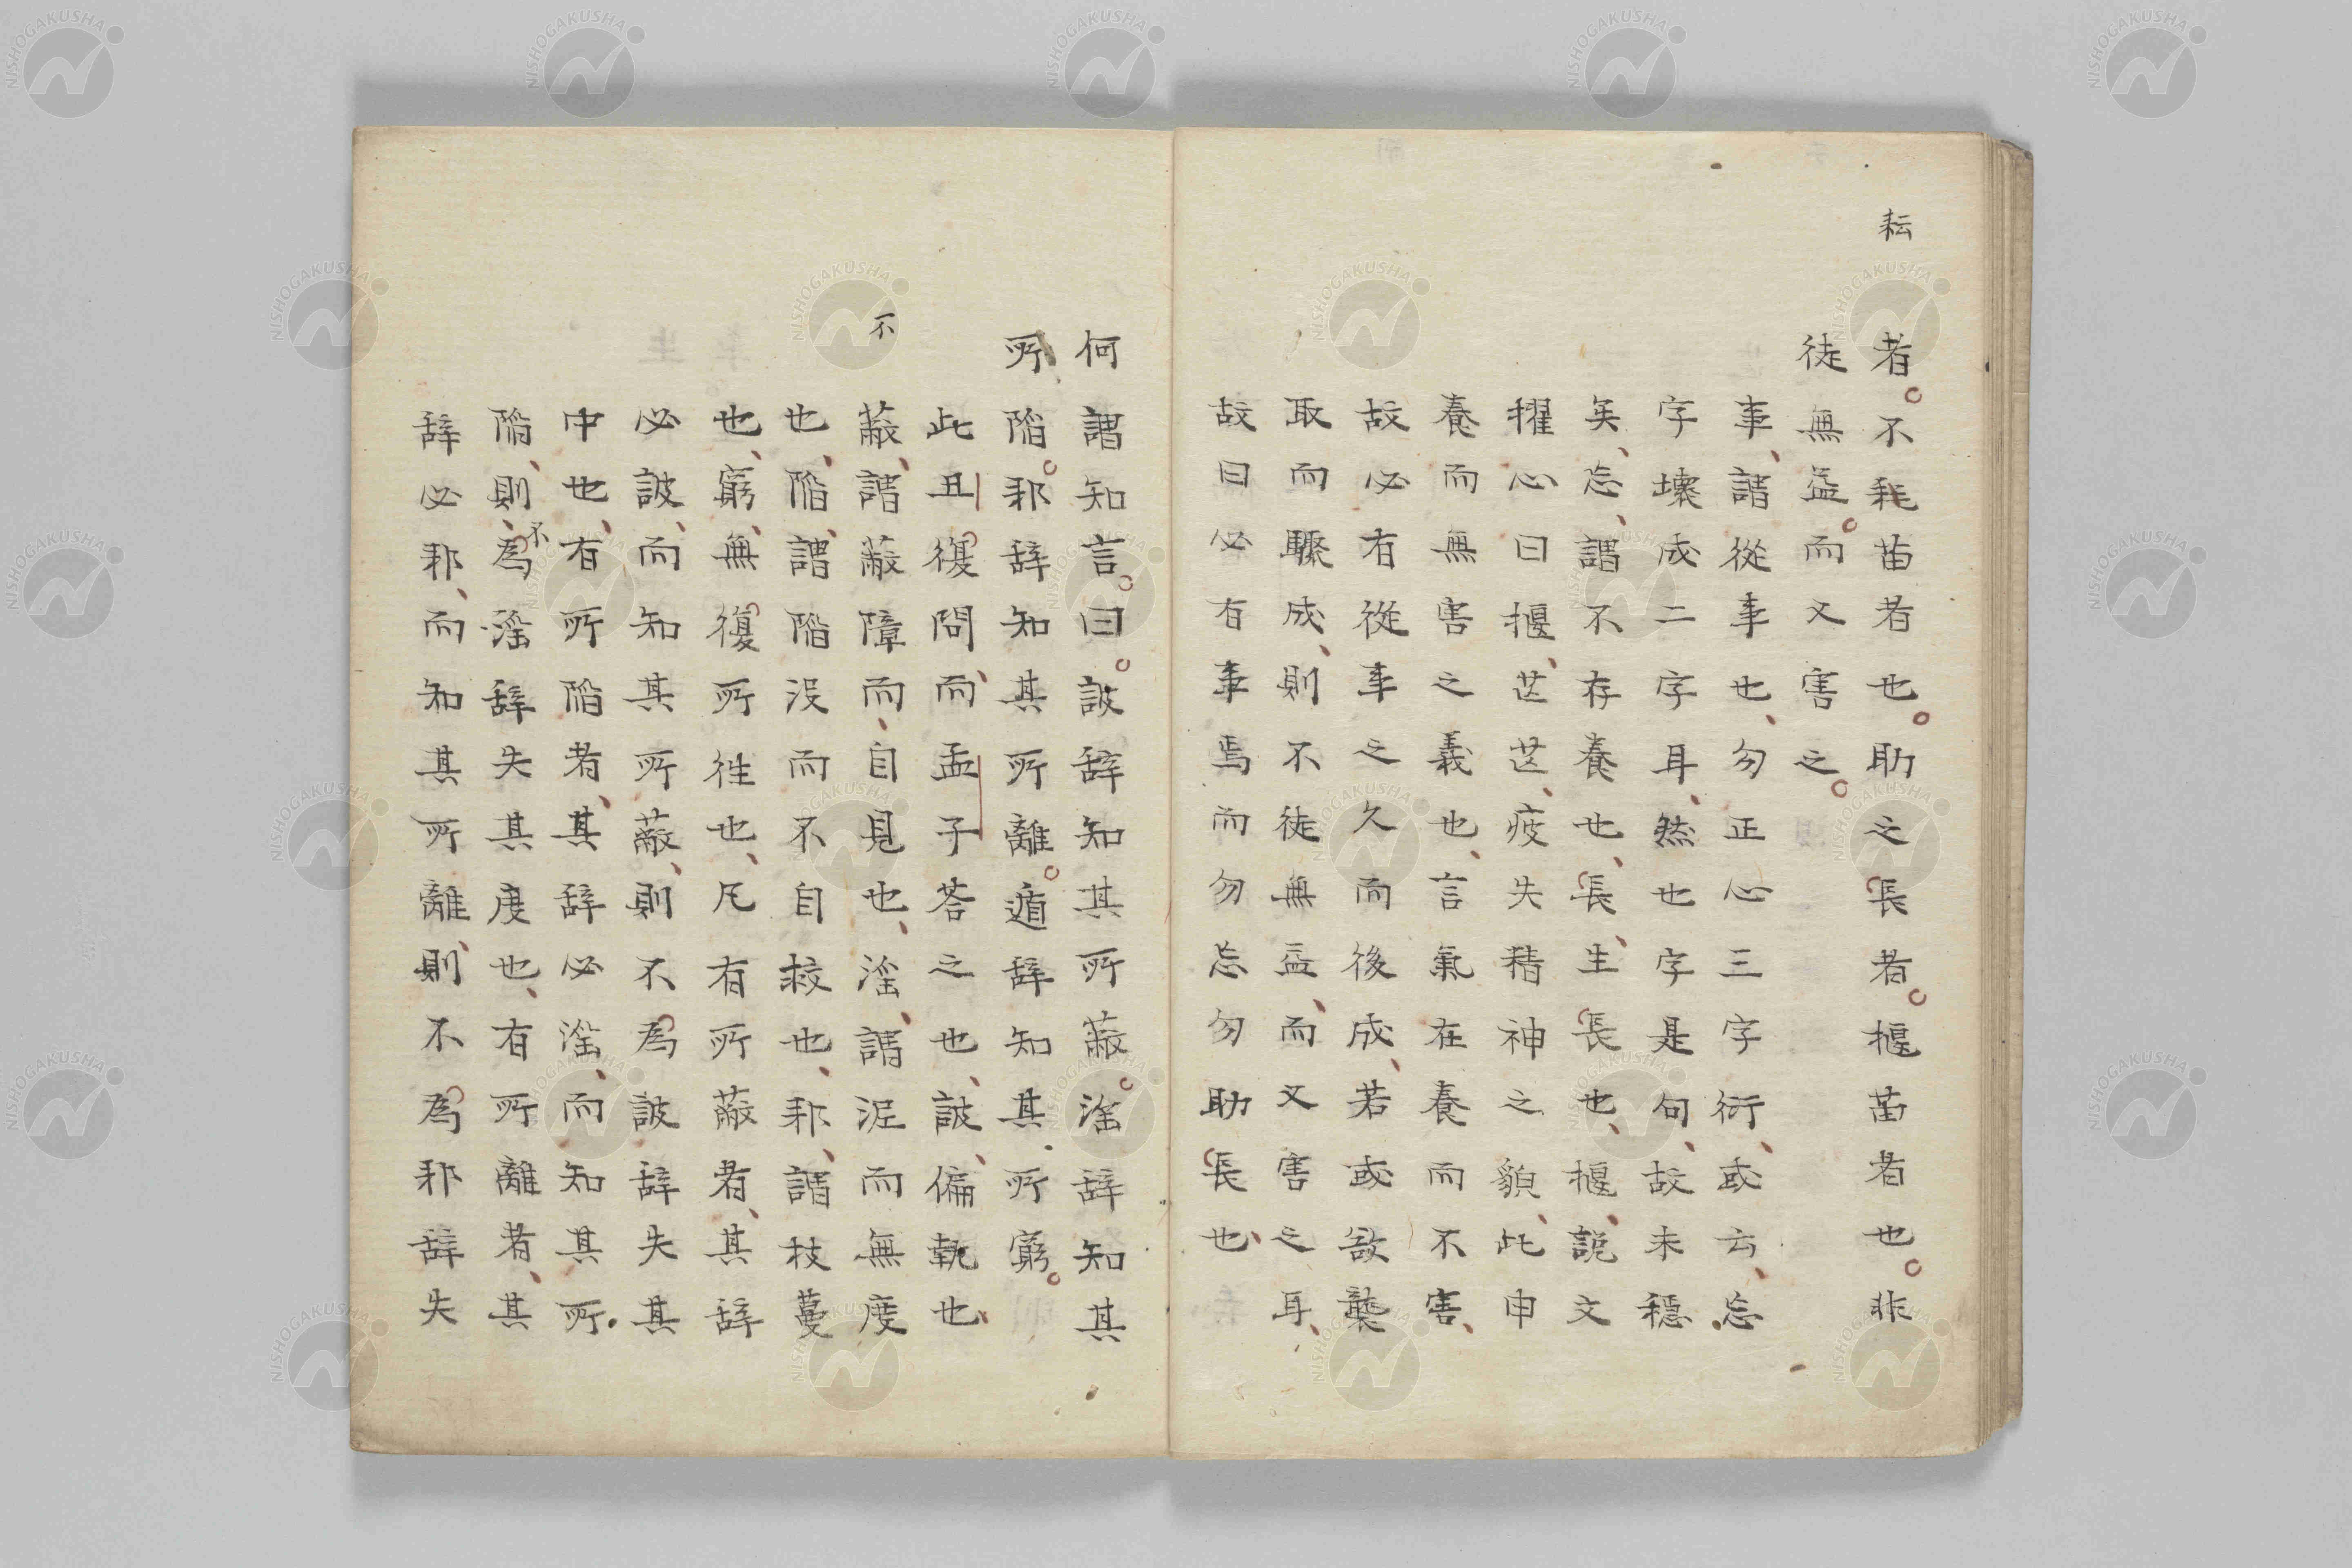 耘
者不耗苗者也助之長者揠苗者也非
徒無益而又害之
事謂從事也勿正心三字衍或云忘
字壞成二字耳然也字是句故未穩
矣忘謂不存養也長生長也揠說文
擢心曰揠芒芒疲失精神之貌此申
養而無害之義也言氣在養而不害
故必有從事之久而後成若或欲襲
取而驟成則不徒無益而又害之耳
故曰必有事焉而勿忘勿助長也
何謂知言曰詖辞知其所蔽淫辞知其
所陷邪辞知其所離遁辞知其所窮
此丑復問而孟子荅之也詖偏執也
不
蔽謂蔽障而自見也淫謂泥而無度
也陷謂陷没而不自救也邪謂枝蔓
也窮無復所往也凡有所蔽者其辞
必詖而知其所蔽則不為詖辞失其
中也有所陷者其辞必淫而知其所
陷則不為淫辞失其度也有所離者其
辞必邪而知其所離則不為邪辞失
NISHOGAKUSHA